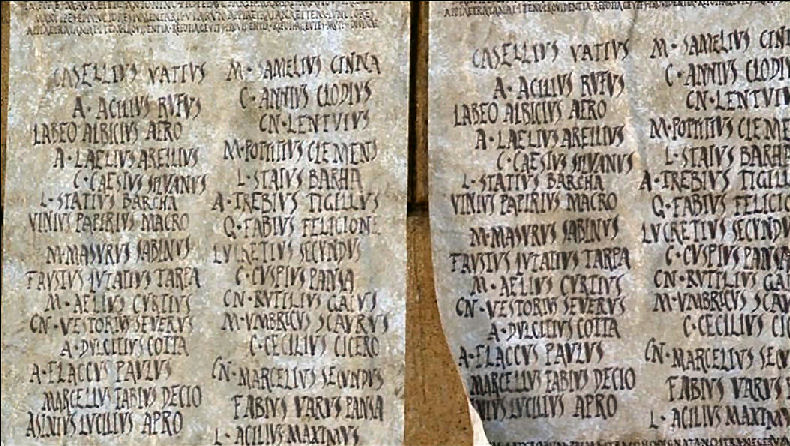 CASELLIVS VATIVS
A · ACILIVS RVFVS
LABEO ALBICIVS AERO
A · LAELIVS AREILIVS
C · CAESIVS SILVANVS
L · STATIVS BARCHA
VINIVS PAPIRIVS MACRO
M · MASVRVS SABINVS
FAVSTVS LVTATIVS TARPA
M · AELIVS CVRTIVS
CN · VESTORIVS SEVERVS
A · DVLCILIVS COTTA
A · FLACCVS PAVLVS
MARCELLVS FABIVS DECIO
ASINIVS LVCILIVS APRO
M · SAMELIVS CINNA
C · ANNIVS CLODIVS
CN · LENTVLVS
M · POTITIVS CLEMENS
L · STAIVS BARHA
A · TREBIVS TIGILLVS
Q · FABIVS FELICIONE
LVCRETIVS SECVNDVS
C · CVSPIVS PANSA
CN · RVTILIVS GALVS
M · VMBRICVS SCAVRVS
C · CECILIVS CICERO
CN · MARCELIVS SECVNDVS
FABIVS VARVS PANSA
L · ACILIVS MAXIMVS
CASELLIVS VATIVS
A · ACILIVS RVFVS
LABEO ALBICIVS AERO
A · LAELIVS AREILIVS
C · CAESIVS SILVANVS
L · STATIVS BARCHA
VINIVS PAPIRIVS MACRO
M · MASVRVS SABINVS
FAVSTVS LVTATIVS TARPA
M · AELIVS CVRTIVS
CN · VESTORIVS SEVERVS
A · DVLCILIVS COTTA
A · FLACCVS PAVLVS
MARCELLVS FABIVS DECIO
LVCILIVS APRO
M · SAMELIVS
C · ANNIVS
CN · LENTVL
M · POTITIVS CLEME
L · STAIVS BARH
A · TREBIVS TIGILL
Q · FABIVS FELICIO
LVCRETIVS SECVNDV
C · CVSPIVS PANSA
CN · RVTILIVS GA
M · VMBRICVS SCAV
C · CECILIVS CI
CN · MARCELIVS SECV
FABIVS VARVS P
L · ACILIVS MAXIM